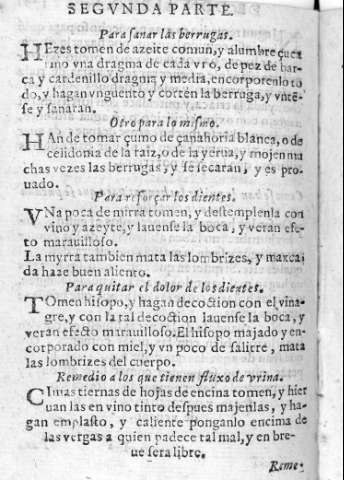 SEGVNDA PARTE.
Para sanar las berrugas.
HEzes tomen de azeite comun, y alumbre çuca
mo vna dragma de cada vro, de pez de bar-
ca y cardenillo dragma y media, encorporenlo to
do, y hagan vnguento y corten la berruga, y vnte-
se y sanaran.
Otro para lo mismo.
HAn de tomar çumo de çanahoria blanca, o de
celidonia de la raiz, o de la yerua, y mojen mu
chas vezes las berrugas, y se secaran, y es pro-
uado.
Para reforçar los dientes.
VNa poca de mirra tomen, y destemplenla con
vino y azeyte, y lauense la boca, y veran efe-
to marauilloso.
La myrra tambien mata las lombrizes, y maxca
da haze buen aliento.
Para quitar el dolor de los dientes.
TOmen hisopo, y hagan decoction con el vina-
gre, y con la tal decoction lauense la boca, y
veran efecto marauilloso. El hisopo majado y en-
corporado con miel, y vn poco de salitre, mata
las lombrizes del cuerpo.
Remedio a los que tienen fluxo de vrina.
CImas tiernas de hojas de encina tomen, y hier
uan las en vino tinto despues majenlas, y ha-
gan emplasto, y caliente ponganlo encima de
las vergas a quien padece tal mal, y en bre-
ue sera libre.
Reme-